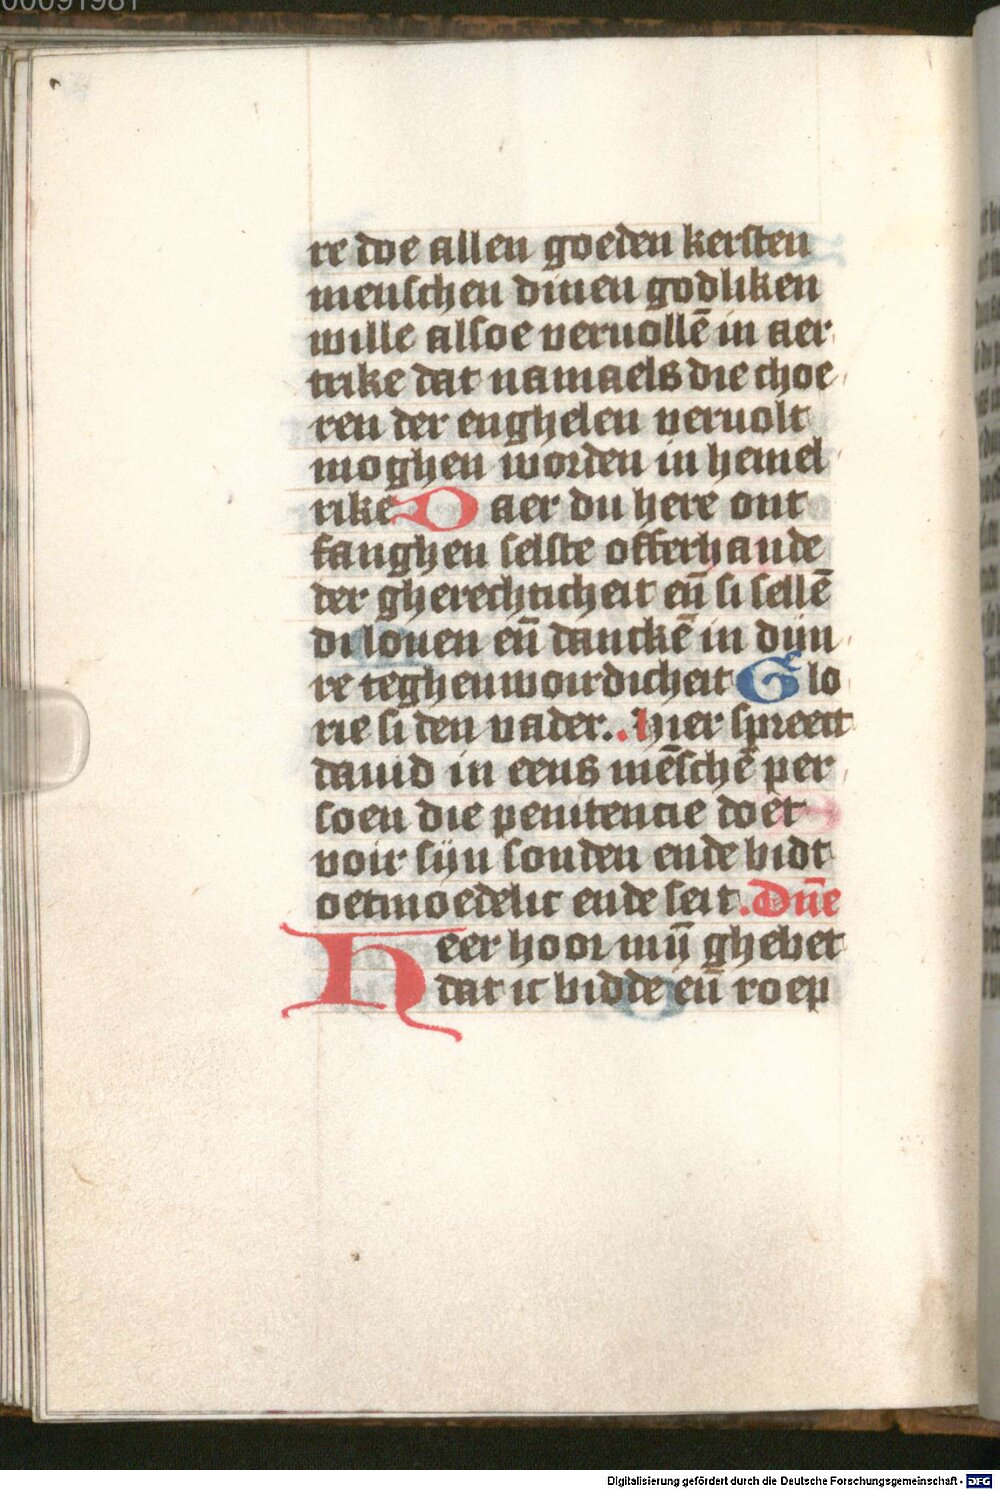 00091981
re doe allen goeden kersten
menschen dinen godliken
wille alsoe veruollē in aer
trike dat namaels die choe
ren der enghelen veruolt
moghen worden in hemel
rike Daer du here ont
fanghen selste offerhande
der gherechticheit eñ si sellē
di louen eñ danckē in dijn
re teghenwoirdicheit Glo
rie si den vader. Hier spreect
dauid in eens mēschē per
soen die penitencie doet
voir sijn sonden ende bidt
oetmoedelic ende seit. Dñe
Heer hoor mijn ghebet
dat ic bidde eñ roep
Digitalisierung gefördert durch die Deutsche Forschungsgemeinschaft - DFG